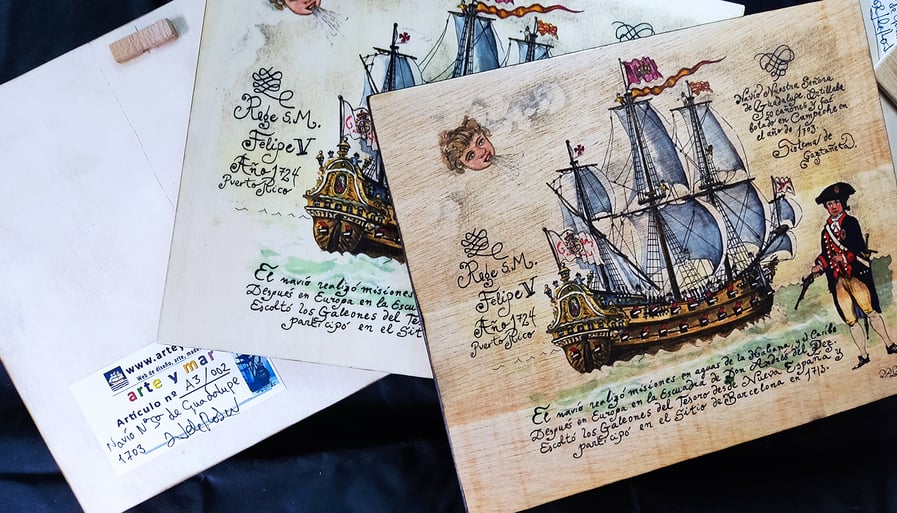 Rege S.M.
Felipe V
Año 1724
Puerto Rico
El navío realizó misiones
Después en Europa en la Escua
Escoltó los Galeones del Teso
participó en el Siti
www.artey
Web de diseño, arte, made
arte y mar
Artículo nº A3/002
Navío Nª Sª de Guadalupe
1703
Navío Nuestra Señora
de Guadalupe. Artillaba
50 cañones y fue
botado en Campeche en
el año de 1703.
Sistema de
Gaztañeta.
Rege S.M.
Felipe V
Año 1724
Puerto Rico
El navío realizó misiones en aguas de la Habana y el Caribe
Después en Europa en la Escuadra de Don Andrés del Pez.
Escoltó los Galeones del Tesoro desde Nueva España y
participó en el Sitio de Barcelona en 1713.